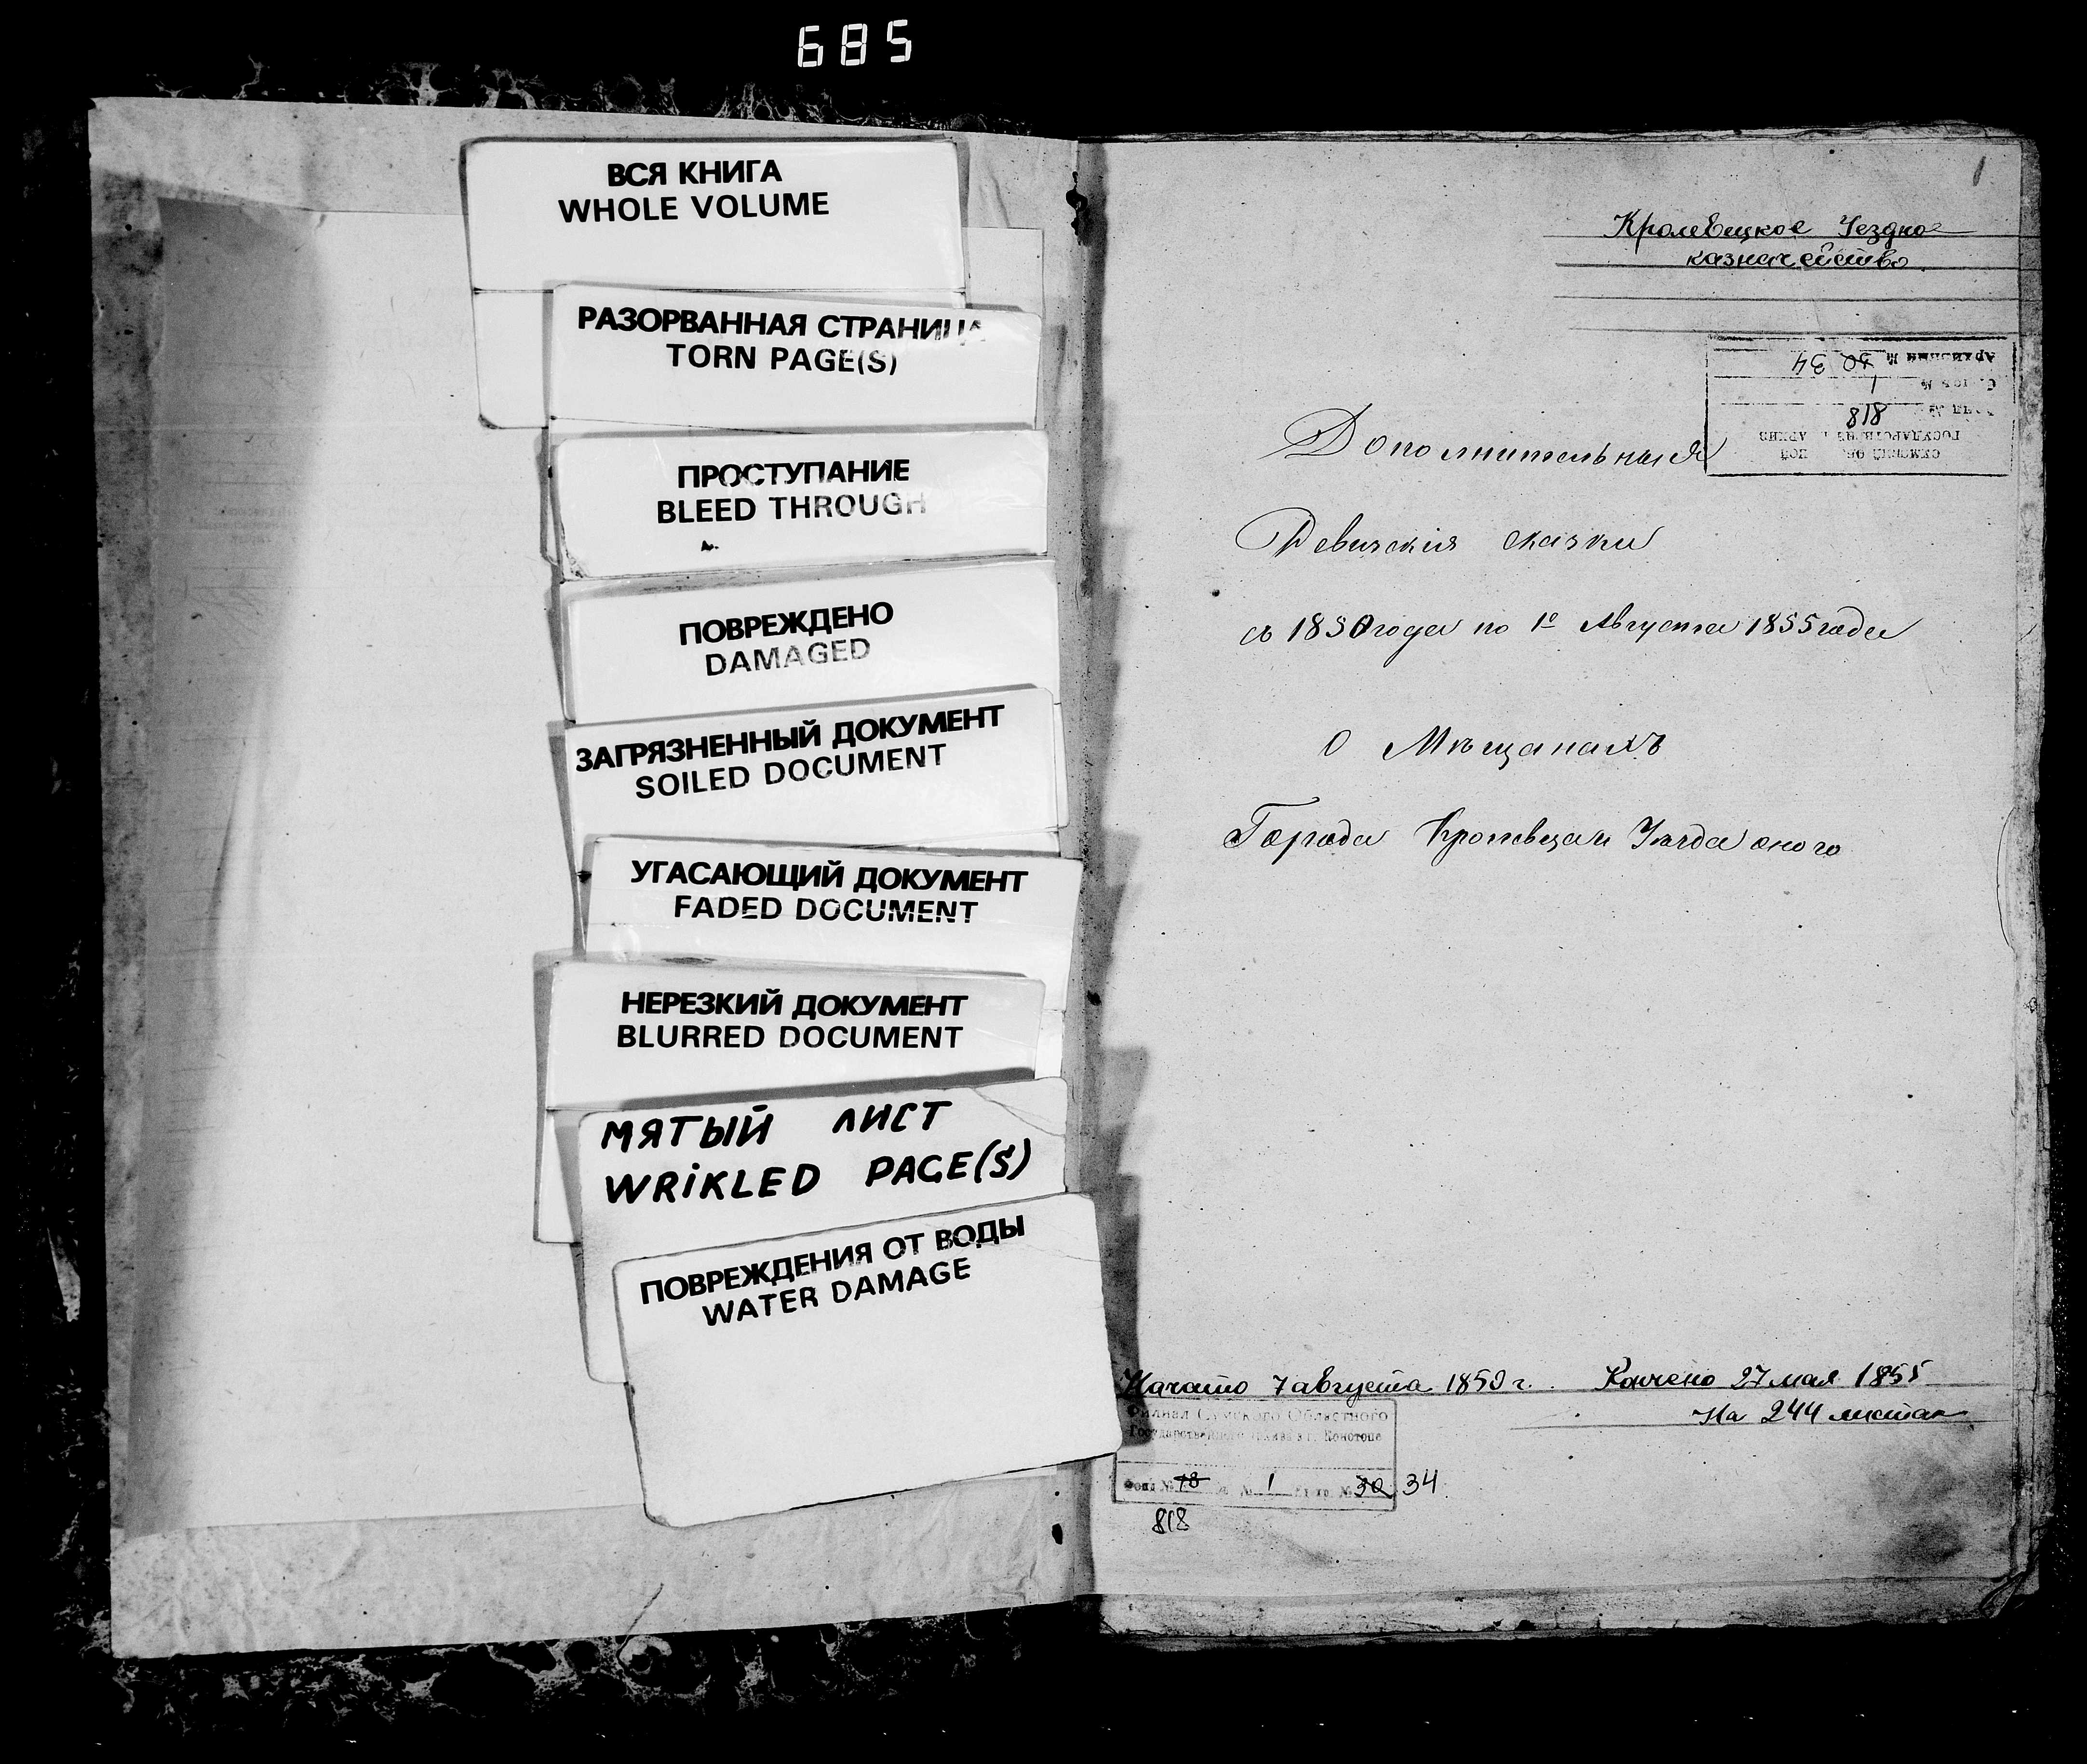 685
ВСЯ КНИГА
WHOLE VOLUME
РАЗОРВАННАЯ СТРАНИЦА
TORN PAGE(S)
ПРОСТУПАНИЕ
BLEED THROUGH
ПОВРЕЖДЕНО
DAMAGED
ЗАГРЯЗНЕННЫЙ ДОКУМЕНТ
SOILED DOCUMENT
УГАСАЮЩИЙ ДОКУМЕНТ
FADED DOCUMENT
НЕРЕЗКИЙ ДОКУМЕНТ
BLURRED DOCUMENT
МЯТЫЙ ЛИСТ
WRiKLED PAGE(S)
ПОВРЕЖДЕНИЯ ОТ ВОДЫ
WATER DAMAGE
1
Кролевецкое Уездное
казначейство
ГОСУДАРСТВ АРХИВ
818
1
30 34
Дополнительныя
Ревизскія сказки
съ 1850 года по 1е Августа 1855 года
О Мѣщанахъ
Города Кролевца и Уѣзда оного
Начато 7 августа 1850 г. Кончено 27 мая 1855
На 244 листах
Филиал Сумского Областного
Государственного архива в г. Конотопе
Фонд № 78 1 № 30 34
818